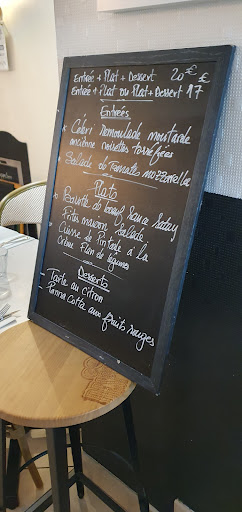 Entrée + Plat + Dessert 20 €
Entrée + Plat ou Plat + Dessert 17 €
Entrées
Céleri Remoulade moutarde
ancienne noisettes torréfiées
Salade de Tomate mozzarella
Plats
de bœuf Sauce Satay
Frites maison Salade
Cuisse de Pintade à la
Crème Flan de légumes
Desserts
- Tarte au citron
- Panna Cotta aux fruits rouges